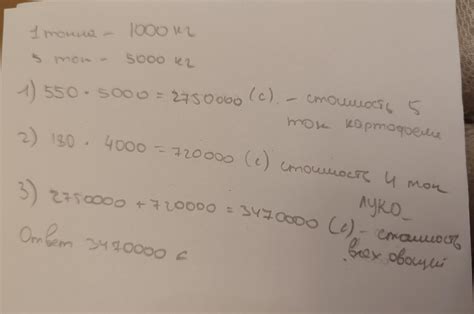 1 тонна - 1000 кг
5 тон - 5000 кг
1) 550 · 5000 = 2750000 (с) - стоимость 5
тон картофеля
2) 180 · 4000 = 720000 (с) стоимость 4 тон
луко
3) 2750000 + 720000 = 3470000 (с) - стоимость
всех овощей
Ответ 3470000 с